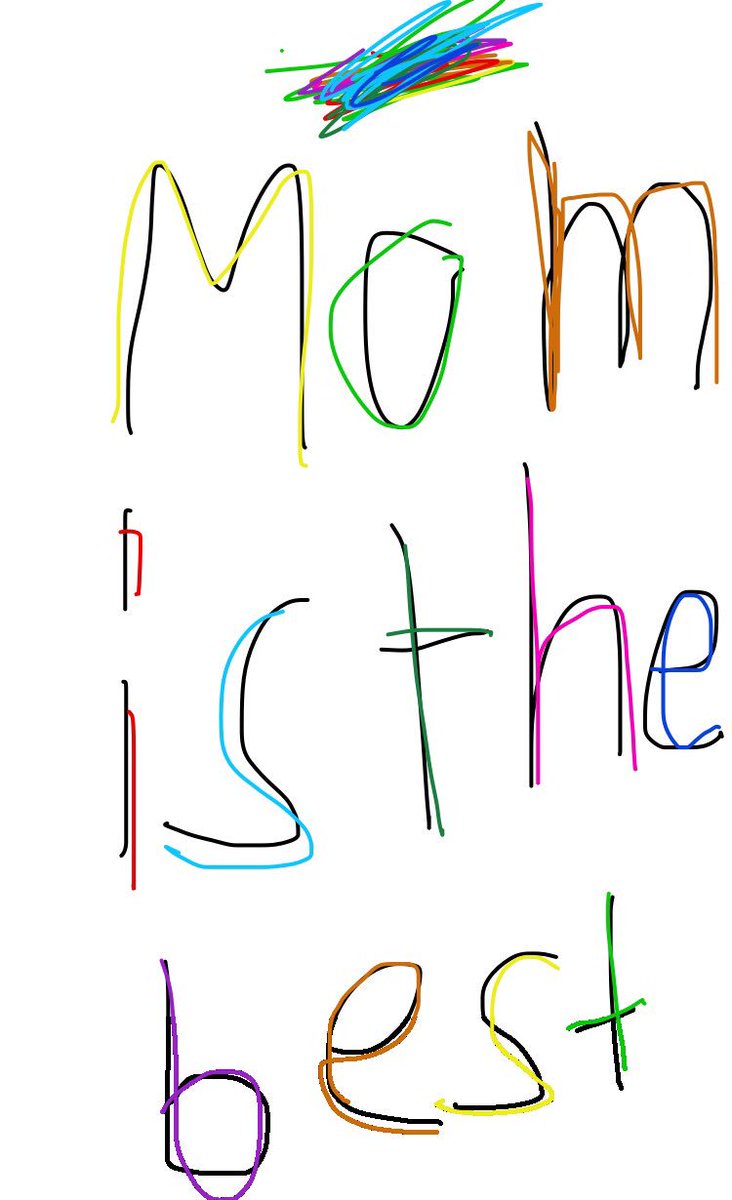 Mom
is the
best